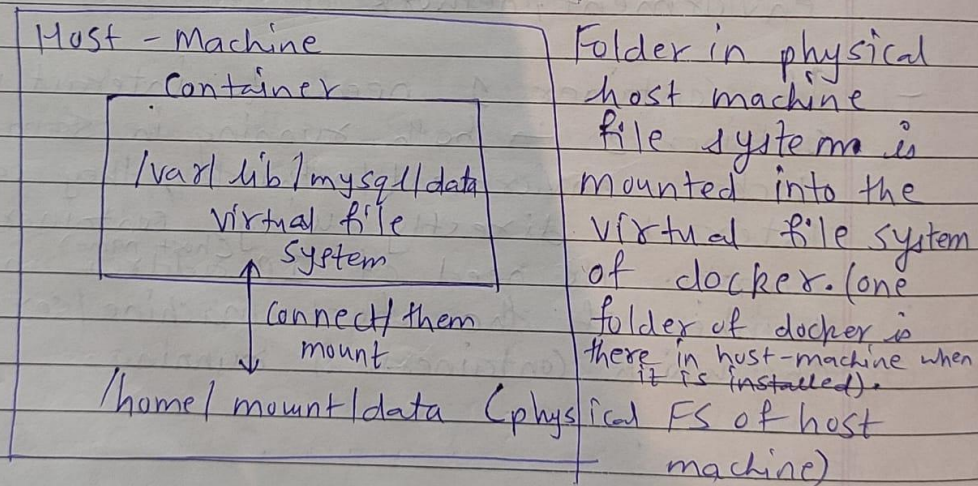 Host - Machine
Container
/var/lib/mysql/data
virtual file
system
Connect/them
mount
/home/mount/data (physical FS of host
machine)
Folder in physical
host machine
file system is
mounted into the
virtual file system
of docker. (one
folder of docker is
there in host-machine when
it is installed).